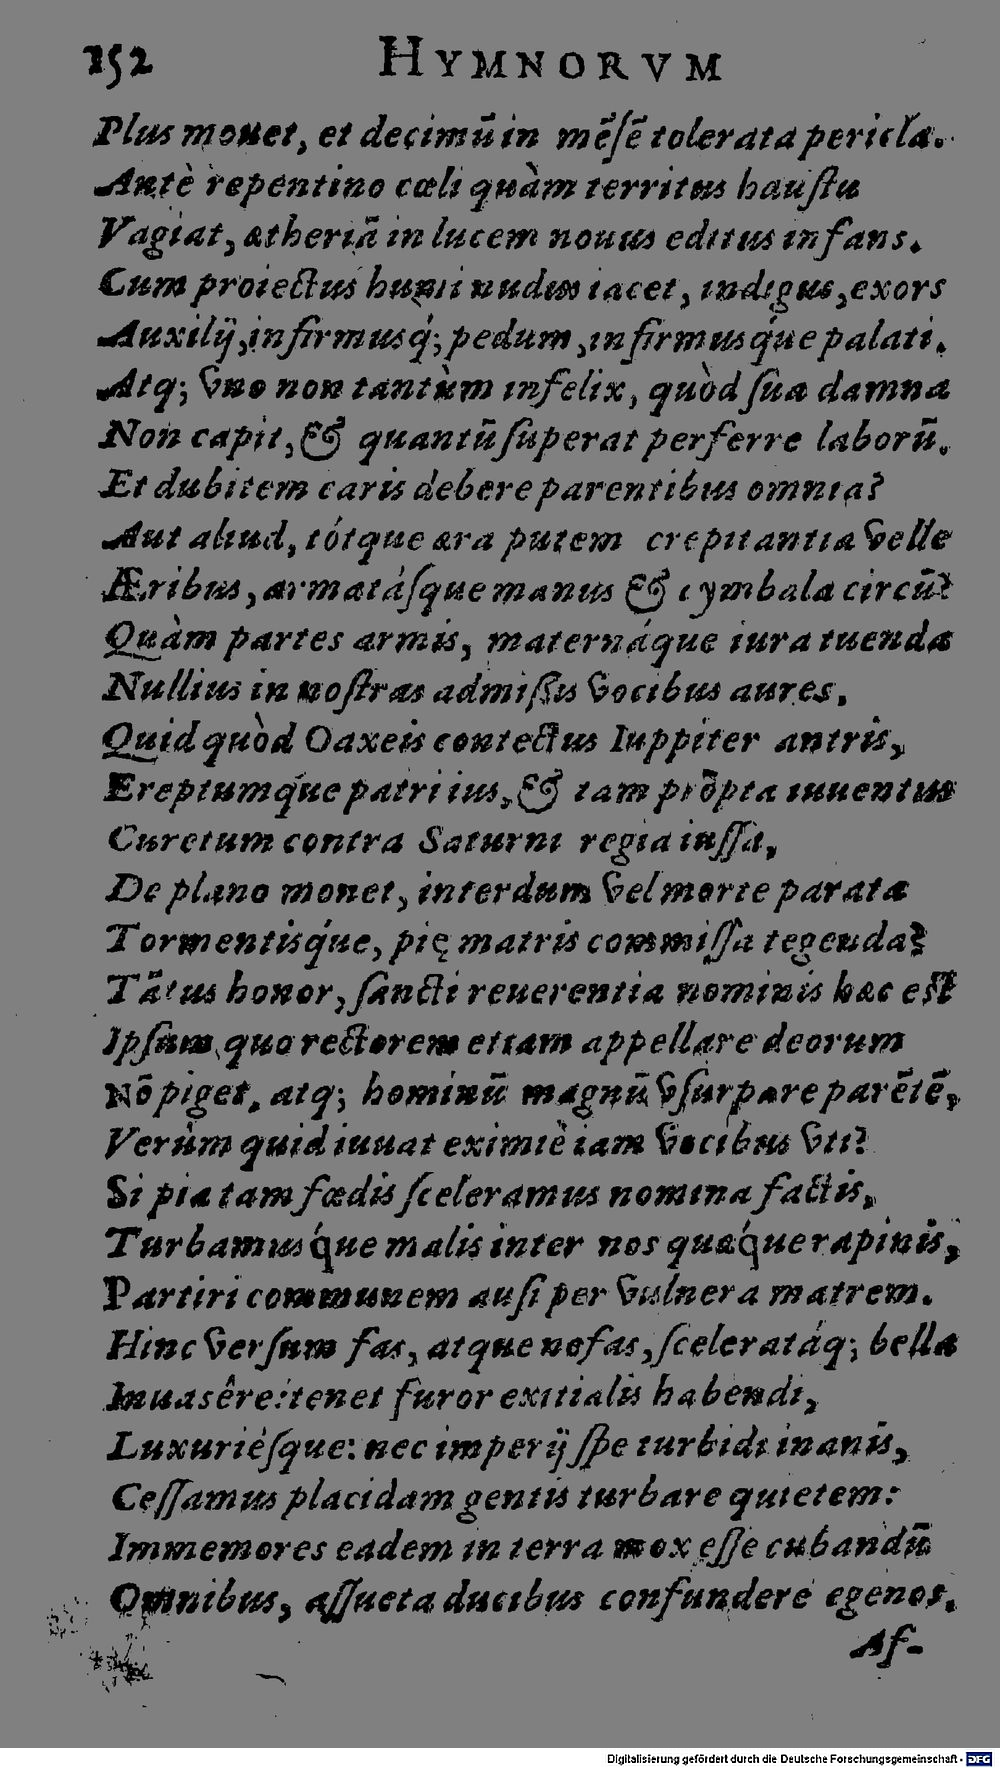 152 HYMNORVM
Plus mouet, et decimũ in mẽſẽ tolerata pericla.
Antè repentino cœli quàm territus hauſtu
Vagiat, ætheriã in lucem nouus editus infans.
Cum proiectus humi nudus iacet, indigus, exors
Auxilij, infirmusq́; pedum, infirmusq́ue palati.
Atq; vno non tantùm infelix, quòd ſua damna
Non capit, & quantũ ſuperat perferre laborũ.
Et dubitem caris debere parentibus omnia?
Aut aliud, tótque æra putem crepitantia velle
Æribus, armatáſque manus & cymbala circũ?
Quàm partes armis, maternáque iura tuenda
Nullius in noſtras admiſſis vocibus aures.
Quid quòd Oaxeis contectus Iuppiter antris,
Ereptumq́ue patri ius, & tam prõpta iuuentus
Curetum contra Saturni regia iuſſa,
De plano monet, interdum vel morte parata
Tormentisq́ue, pię matris commiſſa tegenda?
Tãtus honor, ſancti reuerentia nominis hæc eſt
Ipſum quo rectorem etiam appellare deorum
Nõ piget, atq; hominũ magnũ vſurpare parẽtẽ,
Verùm quid iuuat eximiè iam vocibus vti?
Si pia tam fœdis ſceleramus nomina factis,
Turbamusq́ue malis inter nos quæq́ue rapinis,
Partiri communem auſi per vulnera matrem.
Hinc verſum fas, atque nefas, ſceleratáq; bella
Inuasêre: tenet furor exitialis habendi,
Luxuriéſque: nec imperij ſpe turbidi inanis,
Ceſſamus placidam gentis turbare quietem:
Immemores eadem in terra mox eſſe cubandũ
Omnibus, aſſueta ducibus confundere egenos.
Af-
Digitalisierung gefördert durch die Deutsche Forschungsgemeinschaft - DFG